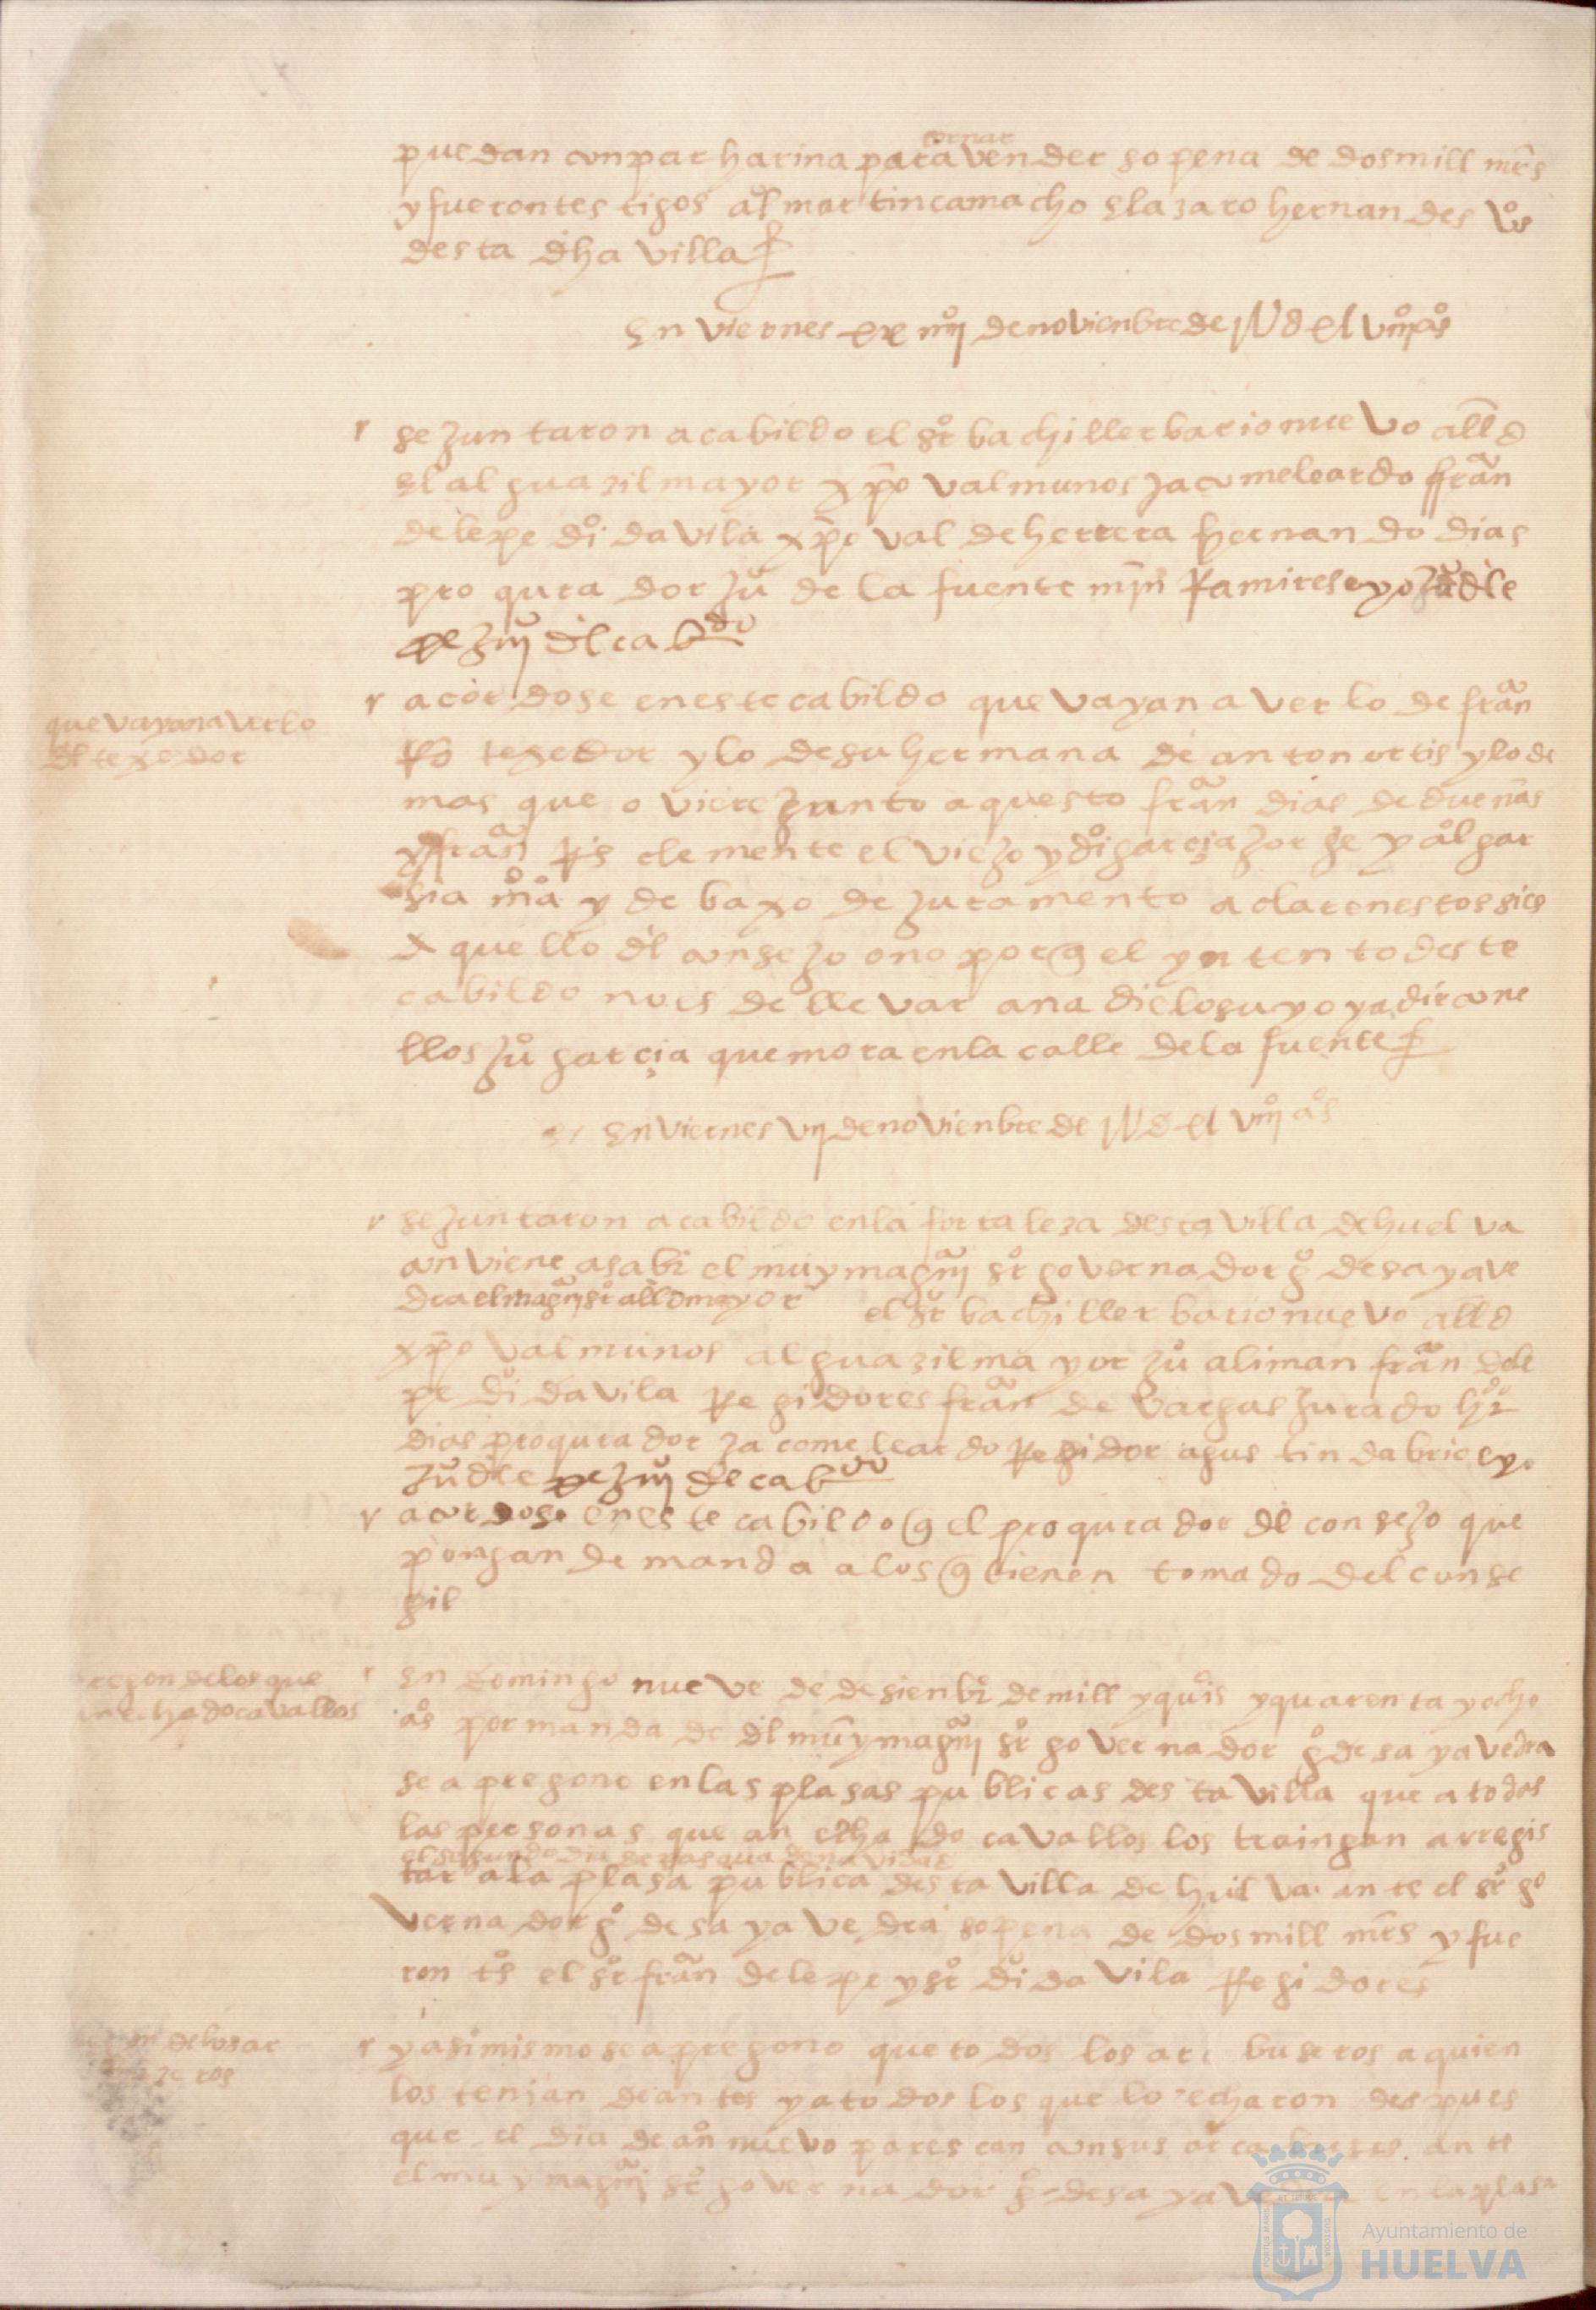 tornar
puedan conpar harina para vender so pena de dos mill mrs
y fueron testigos al martin camacho e lazaro hernandes vos
desta dha villa
en viernes xxiiiiº de novienbre de IUdxlviiiº aºs
se juntaron a cabildo el sr bachiller barionuevo alld
el alguazil mayor xpo valmunos jacome leardo fran
de lepe dio davila xpo val de herrera hernando dias
procurador juº de la fuente min Ramires e yo juº de
del cabdo
que vayan a ver lo
dl texedor
acordose en este cabildo que vayan a ver lo de fran
Rs texedor y lo de su hermana de anton ortis y lo de
mas que oviere junto a questo fran dias de duenas
y fran Rs clemente el viejo y dio garcia jorje y al gar
sia y debaxo de juramento aclaren estos si es
aquello dl consejo o no porq el yntento deste
cabildo no es de llevar a nadie lo suyo y a dir con e
llos juº garcia que mora en la calle de la fuente
en viernes vii de novienbre de IUdxlviiiº aºs
se juntaron a cabildo en la fortaleza desta villa de huelva
conviene a sabr el muy magco sr governador gº de sayave
dra el magco sr alld mayor el sr bachiller barionuevo alld
xpo valmunos alguazil mayor juº aliman fran de le
pe di davila Regidores fran de vargas jurado hr
dias procurador jacome leardo Regidor agustin dabrio e yo
juº de del cabdo
acordose en este cabildo q el procurador del consejo que
pongan demanda a los q tienen tomado del conse
gil
regon de los que
an echado cavallos
en domingo nueve de desienbr de mill y quis y quarenta y ocho
aºs por mandado dl muy magco sr governador gº de sayavedra
se apregono en las plasas publicas desta villa que a todos
las personas que an echado cavallos los traingan a rregis
el segundo dia de pasqua de navidad
tar a la plasa publica desta villa de huelva ante el sr go
vernador gº de sayavedra so pena de dos mill mrs y fue
ron ts el sr fran de lepe y sr di davila Regidores
de los ar
zeros
y asimismo se apregono que todos los ar buseros a quien
los tenian deantes y a todos los que lo echaron despues
que el dia de an nuevo parescan con sus arcabuses ante
el muy magco sr governador gº de sayavedra en la plasa
Ayuntamiento de
HUELVA